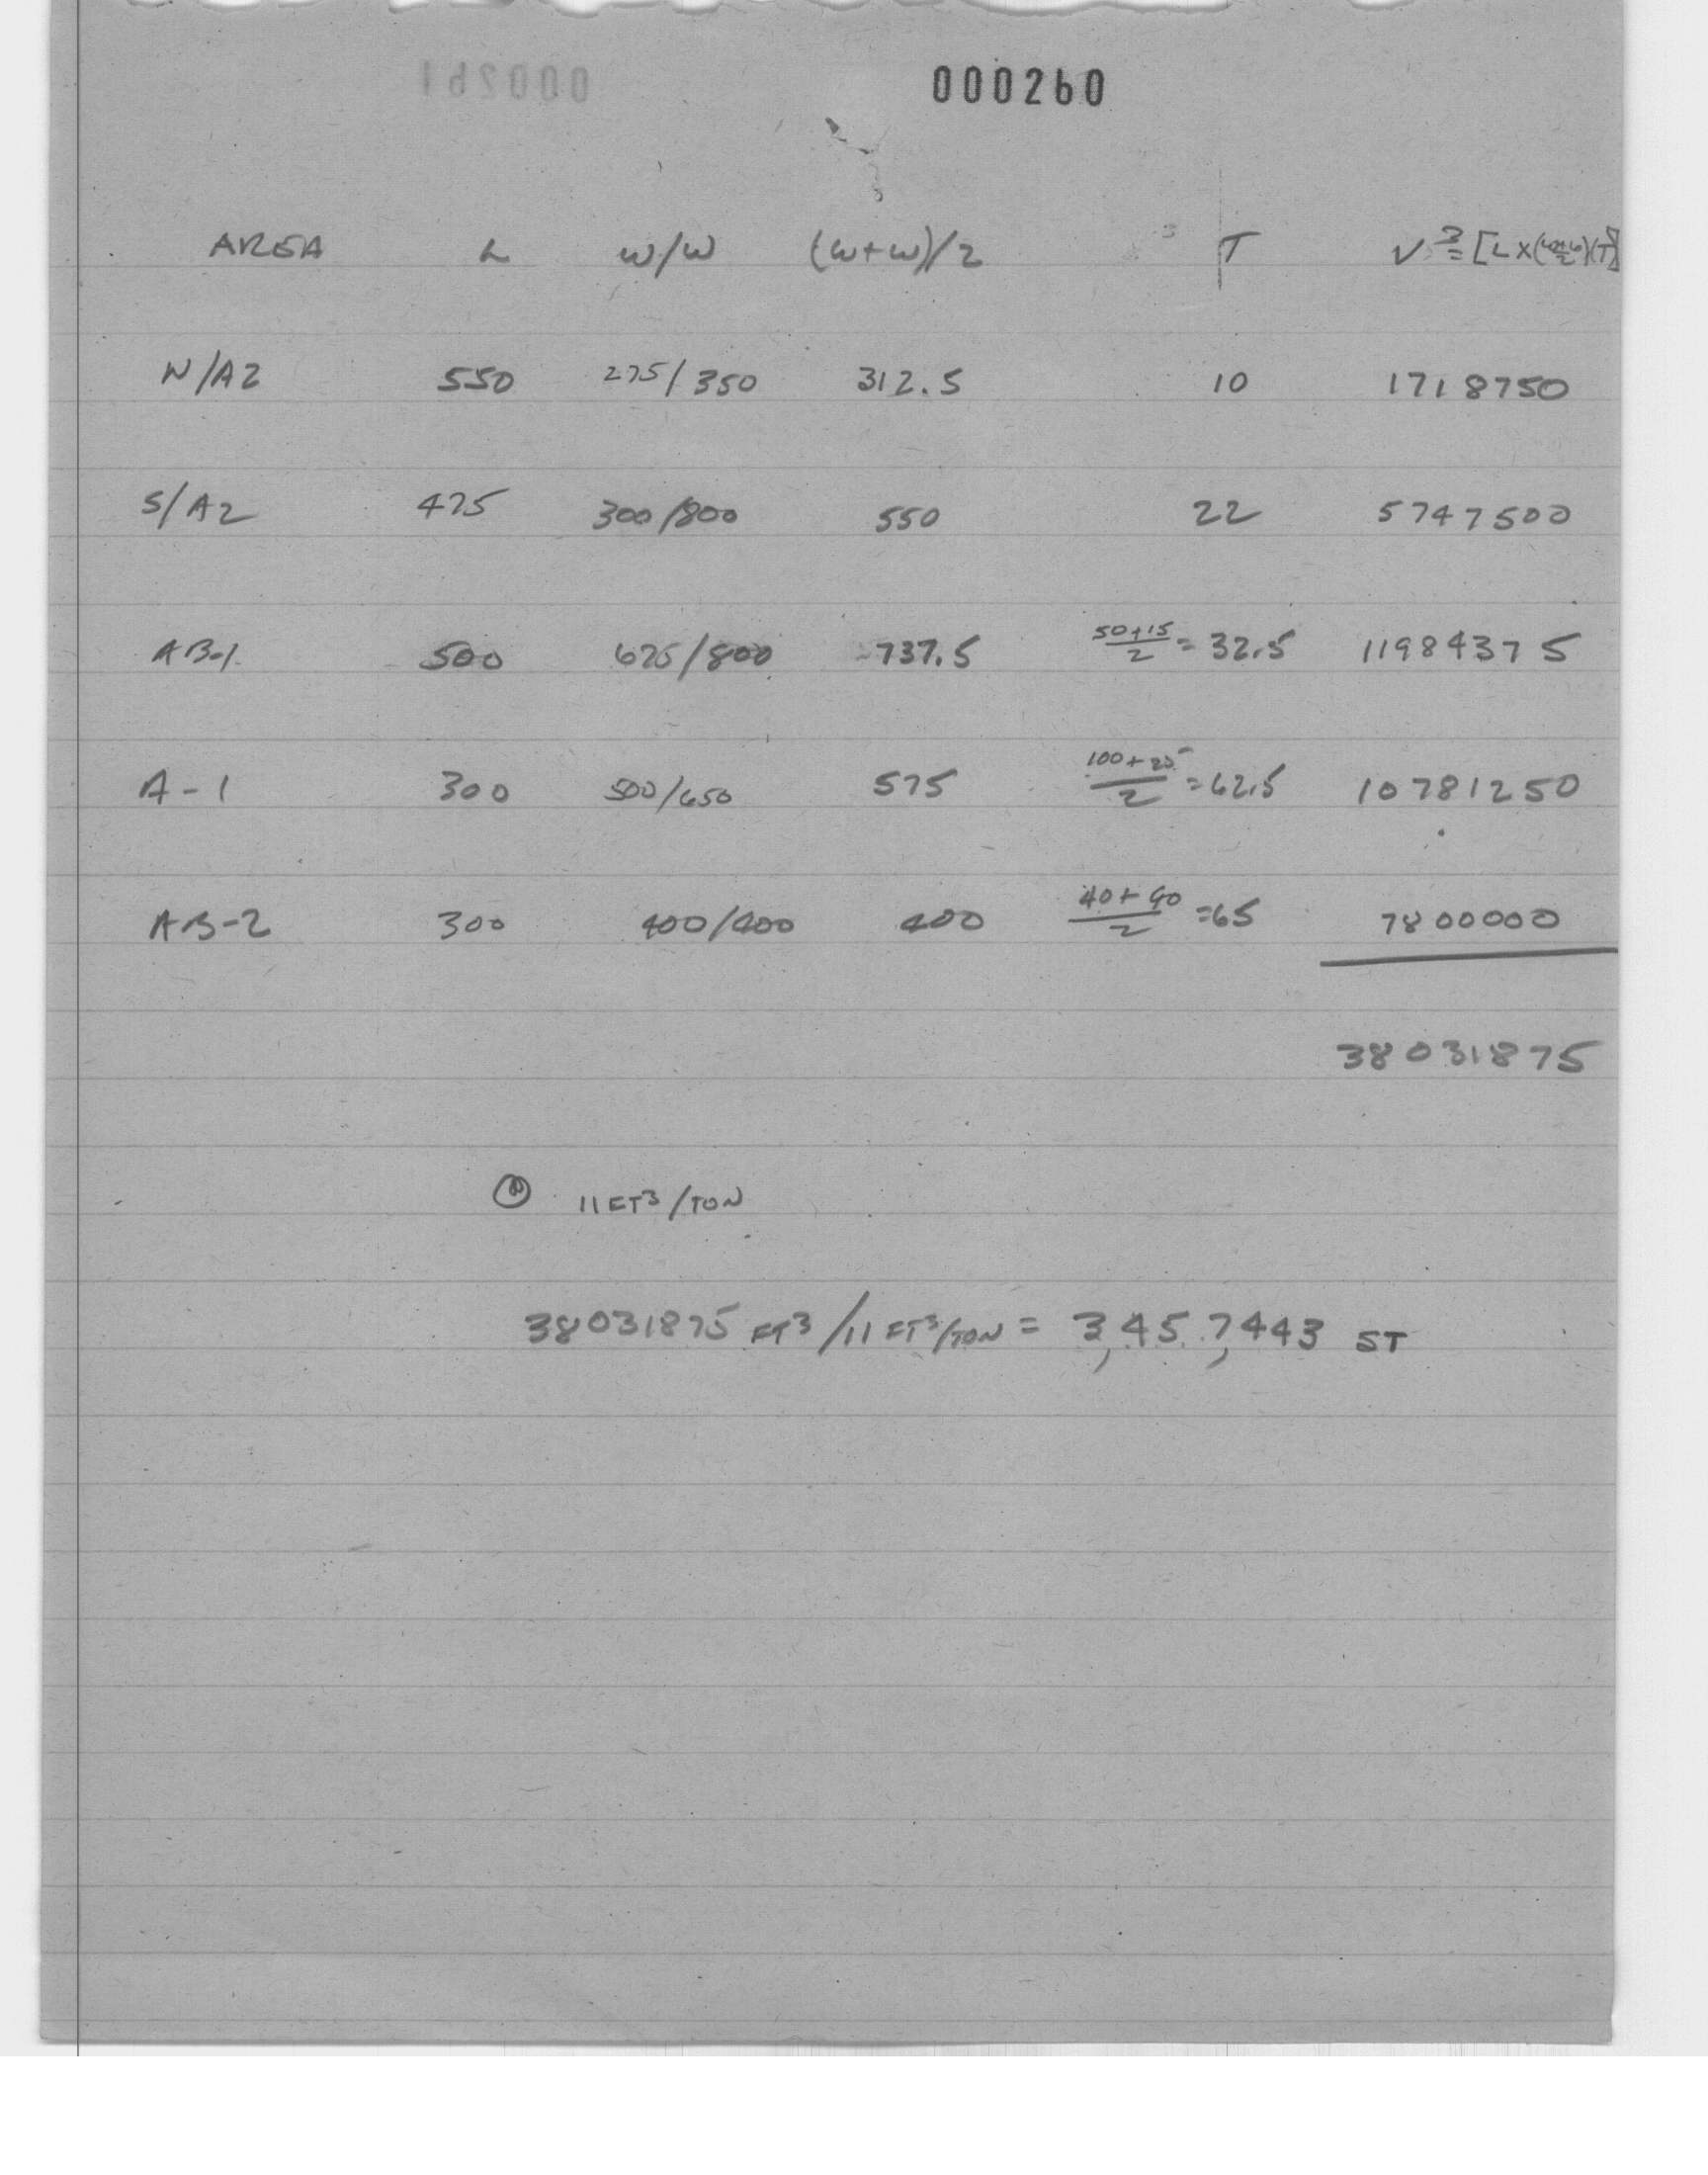 000260
AREA L W/W (W+W)/2 T V ≟ [L x (W+W/2)(T)]
N/A2 550 275/350 312.5 10 1718750
S/A2 475 300/800 550 22 5747500
AB-1 500 675/800 737.5 50+15/2 = 32.5 11984375
A-1 300 500/650 575 100+25/2 = 62.5 10781250
AB-2 300 400/400 400 40+90/2 = 65 7800000
38031875
@ 11 FT³/TON
38031875 FT³/11 FT³/TON = 3,457,443 ST